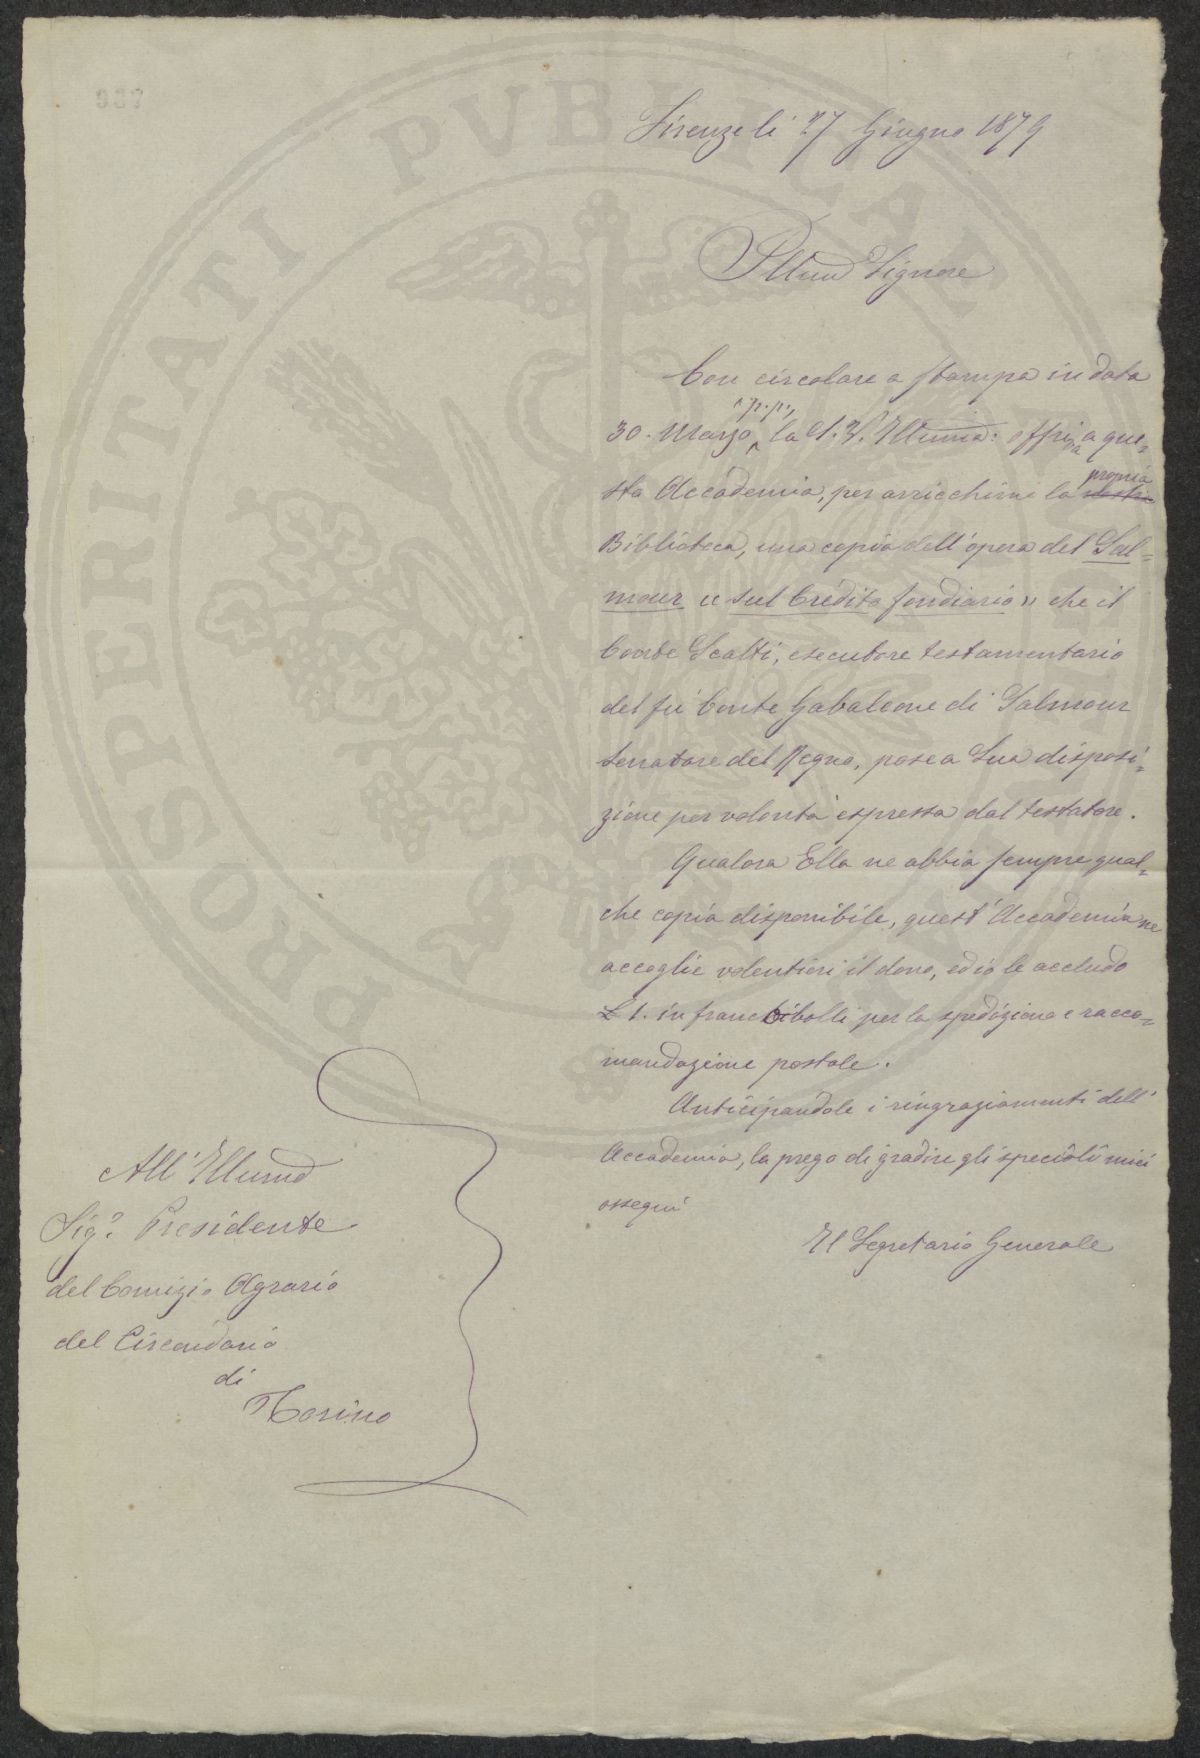 Firenze li 27 Giugno 1879
Illmo Signore
Con circolare a stampa in data
30. Marzo p.p., la S. V. Illuma: offriva a que=
sta Accademia, per arricchirne la nostra propria
Biblioteca, una copia dell'opera del Sal=
mour « sul Credito fondiario » che il
Conte Scalti, esecutore testamentario
del fu Conte Gabaleone di Salmour
Senatore del Regno, pose a Sua disposi=
zione per volontà espressa dal testatore.
Qualora Ella ne abbia sempre qual=
che copia disponibile, quest'Accademia ne
accoglie volentieri il dono, ed io le accludo
£ 1. in francobolli per la spedizione e racco=
mandazione postale.
Anticipandole i ringraziamenti dell'
Accademia, la prego di gradire gli speciali miei
ossequi
Il Segretario Generale
All'Illumo
Sigr. Presidente
del Comizio Agrario
del Circondario
di
Torino
PROSPERITATI PVBLICAE